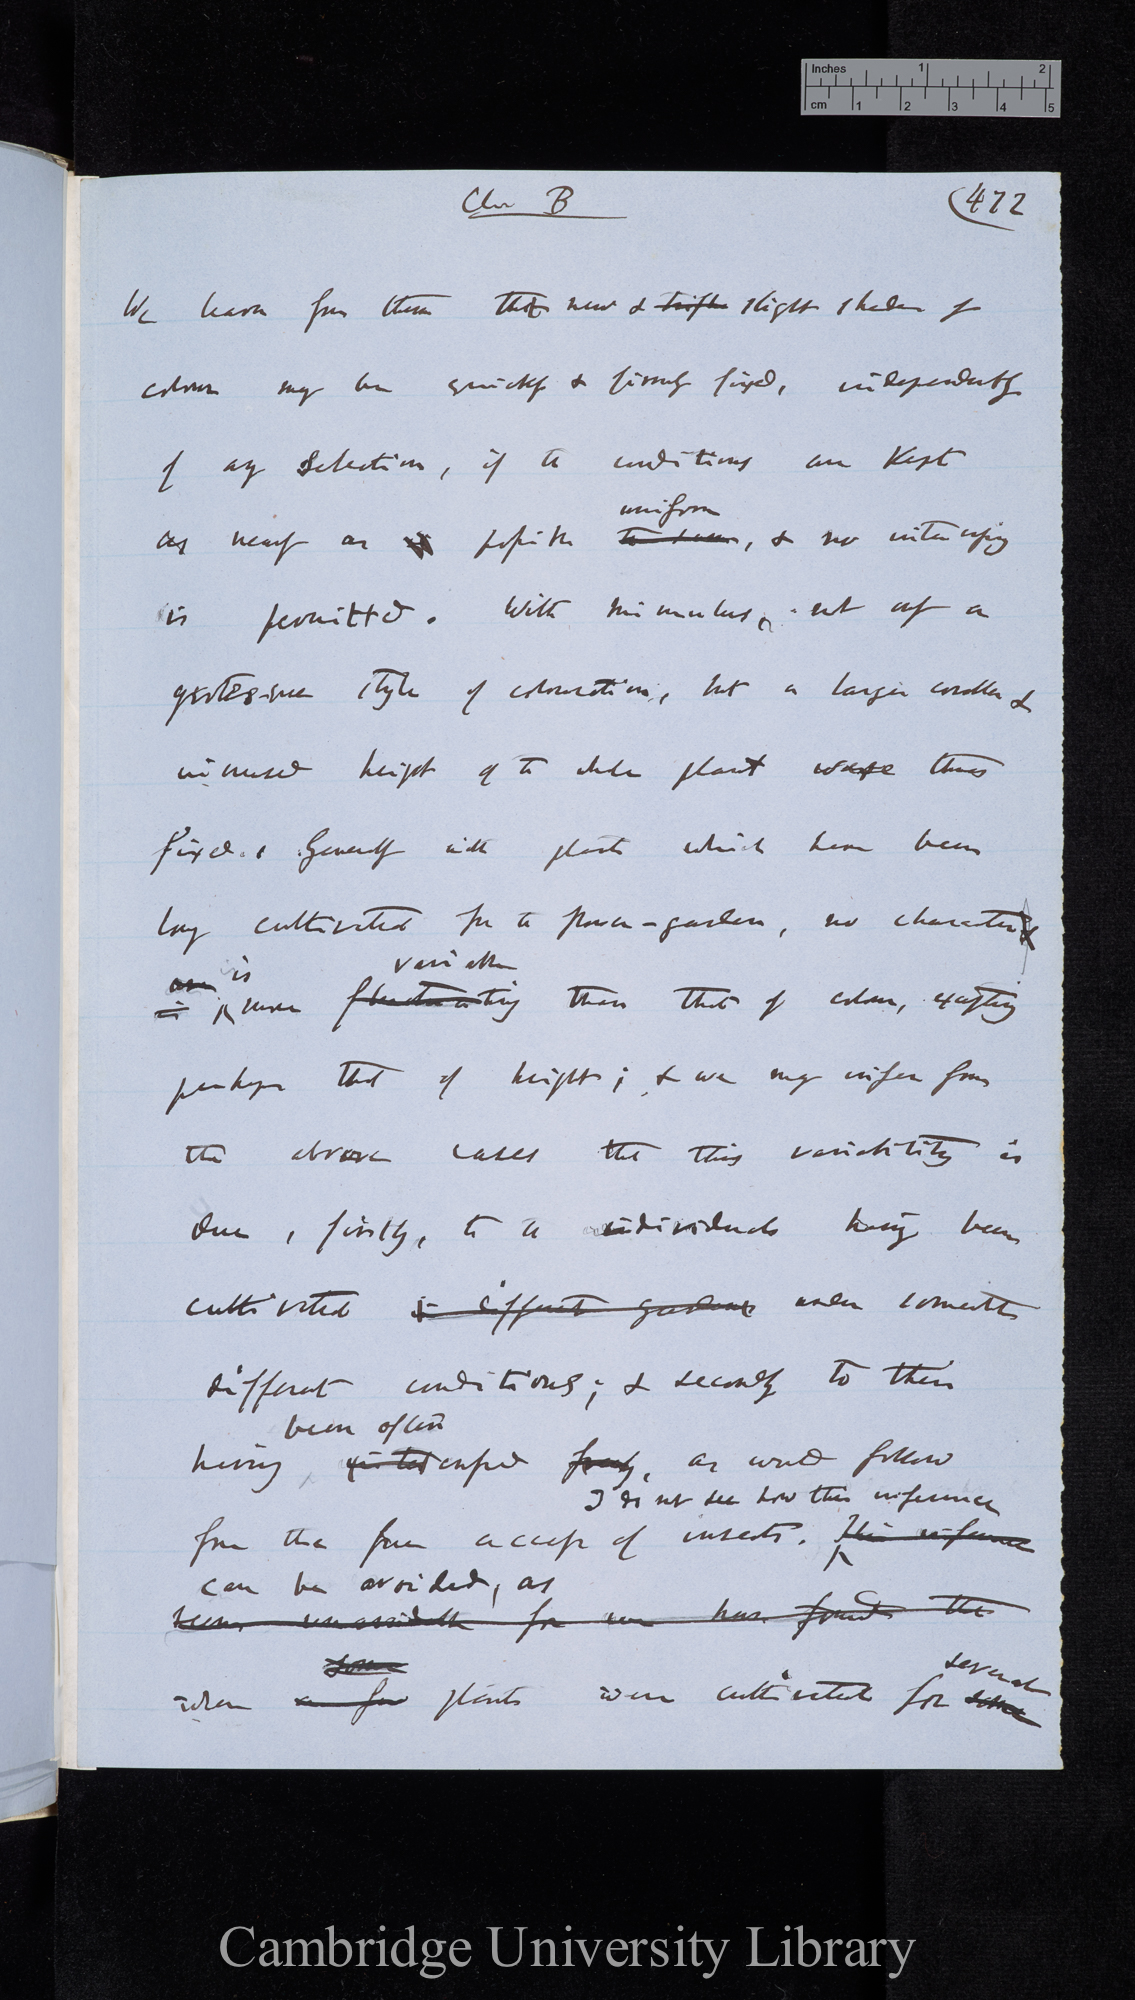 Inches 1 2
cm 1 2 3 4 5
Ch B
(472
We learn from them that new & trifle slight shades of
colour may be quickly & firmly fixed, independently
of any selection, if the conditions are kept
uniform
as nearly as possible the same, & no intercrossing
is permitted. With Mimulus, not only a
grotesque style of colouration, but a larger corolla &
increased height of the whole plant were thus
fixed. Generally with plants which have been
long cultivated for the flower-garden, no character
are is variable
is more fluctuating than that of colour, excepting
perhaps that of height; & we may infer from
the above cases that this variability is
due, firstly, to the individuals having been
cultivated in different gardens under somewhat
different conditions; & secondly to their
been often
having crossed freely, as would follow
I do not see how this inference
from the free access of insects. This inference
can be avoided, as
seems unavoidable for we have found that
some
when a few plants were cultivated for some
several